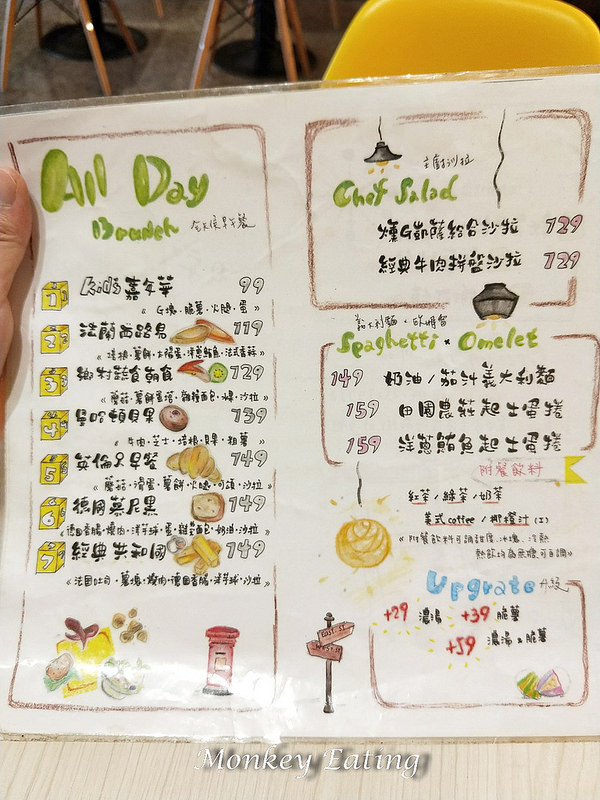 All Day
Brunch 全天候早午餐
1 Kid's 嘉年華 99
《 G塊·脆薯·火腿·蛋 》
2 法蘭西路易 119
《 培根·薯餅·太陽蛋·洋蔥鮪魚·法式香蒜 》
3 鄉村蔬食朝食 129
《 蘑菇·薯餅·蛋·雜糧麵包·水果·沙拉 》
4 曼哈頓貝果 139
《 牛肉·芝士·培根·貝果·粗薯 》
5 英倫早餐 149
《 蘑菇·滑蛋·薯餅·火腿·可頌·沙拉 》
6 德國慕尼黑 149
《 德國香腸·燒肉·洋芋球·蛋·雜糧麵包·奶油·沙拉 》
7 經典共和國 149
《 法國吐司·薯塊·燒肉·德國香腸·洋芋球·沙拉 》
主廚沙拉
Chef Salad
燻G凱薩綜合沙拉 129
經典牛肉拼盤沙拉 129
義大利麵·歐姆蛋
Spaghetti × Omelet
149 奶油/茄汁義大利麵
159 田園農莊起士蛋捲
159 洋蔥鮪魚起士蛋捲
附餐飲料
紅茶/綠茶/奶茶
美式coffee/柳橙汁(I)
《 附餐飲料可調甜度、冰塊、冷熱
熱飲均為無糖可自調 》
Upgrate 升級
+29 濃湯 +39 脆薯
+59 濃湯 & 脆薯
EAST ST
WEST ST
Monkey Eating